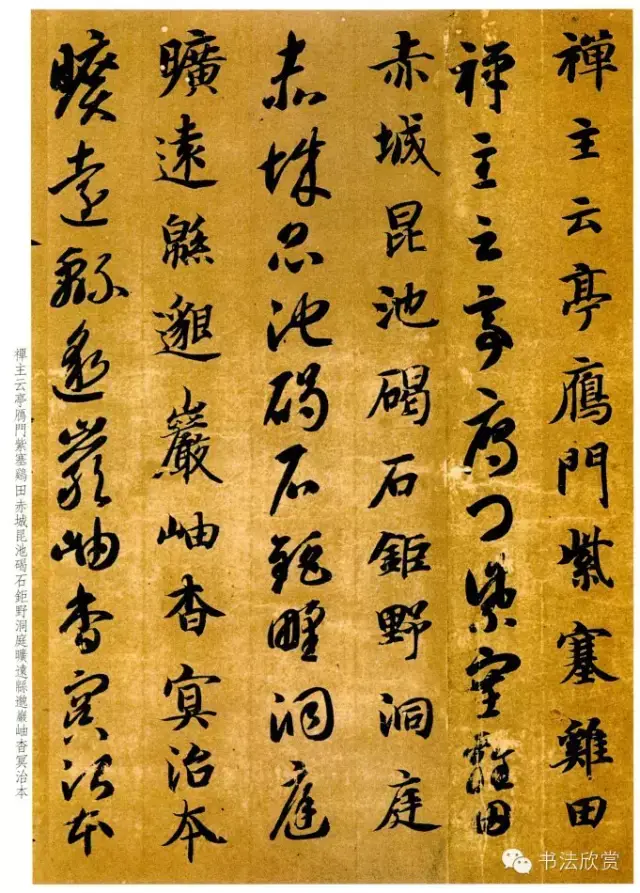 禪主云亭鴈門紫塞雞田
禪主云亭鴈門紫塞雞田
赤城昆池碣石鉅野洞庭
赤城昆池碣石鉅野洞庭
曠遠緜邈巖岫杳冥治本
曠遠緜邈巖岫杳冥治本
禪主云亭鴈門紫塞鷄田赤城昆池碣石鉅野洞庭曠遠緜邈巖岫杳冥治本
书法欣赏